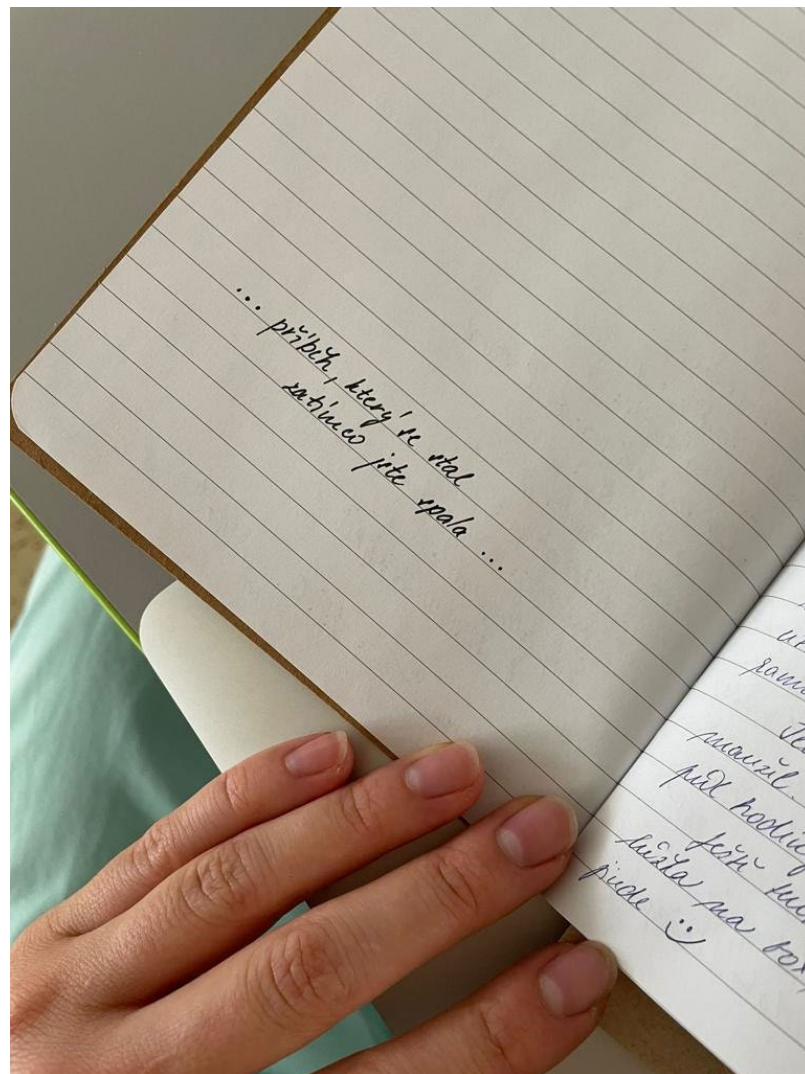 ... příběh, který se stal
zatímco jste spala ...
manžel
půl hodiny
ještě
na box
půjde ☺